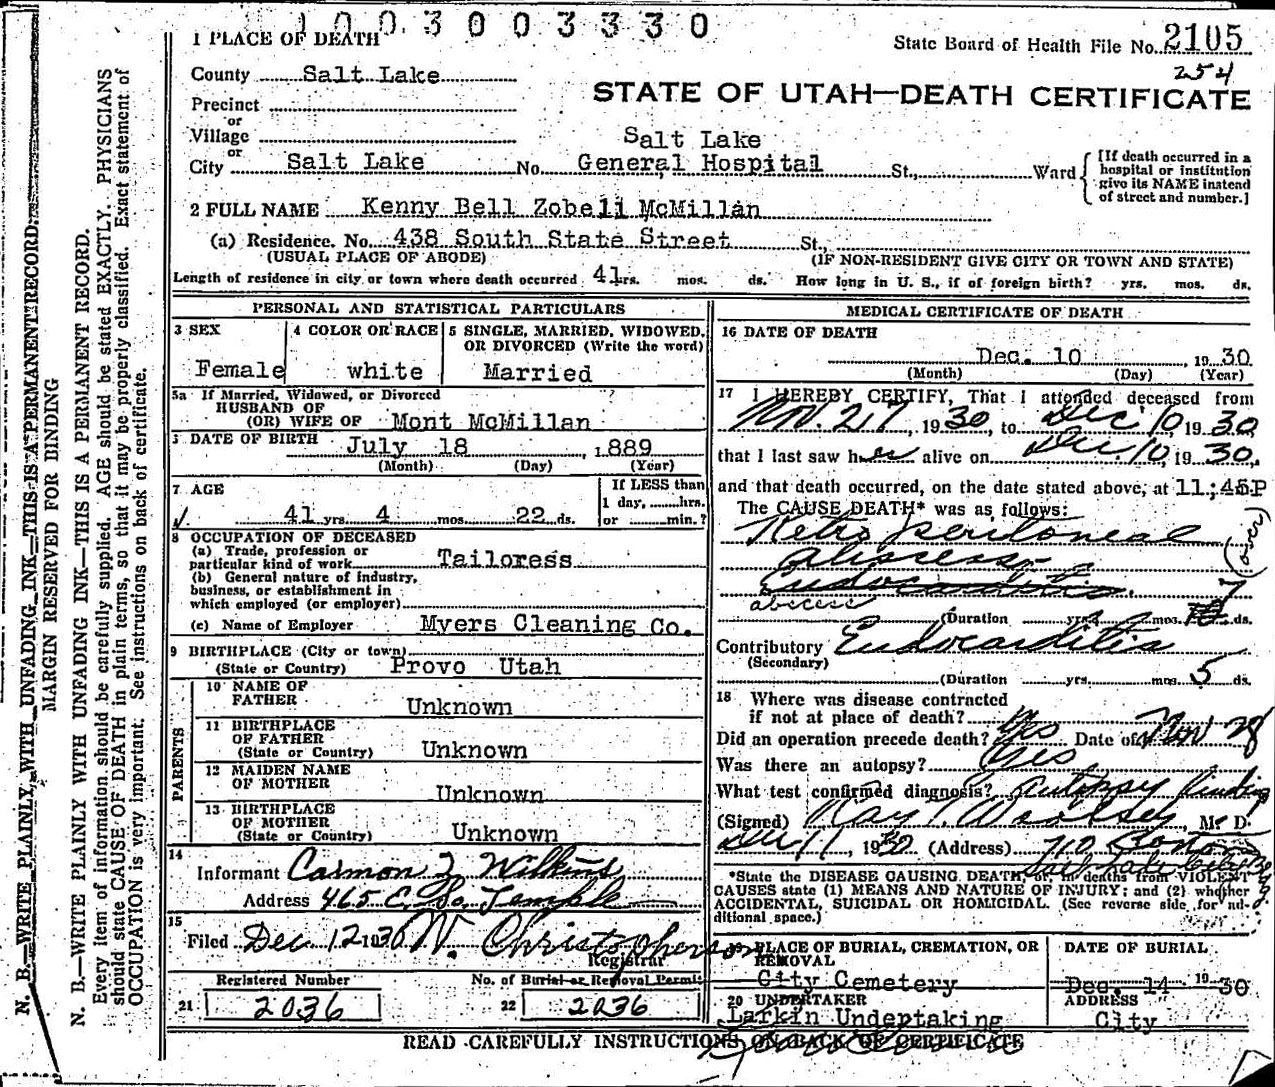 1003003330
1 PLACE OF DEATH
State Board of Health File No. 2105
254
County Salt Lake
STATE OF UTAH—DEATH CERTIFICATE
Precinct
or
Village
or
City Salt Lake No. Salt Lake General Hospital St., Ward
[If death occurred in a
hospital or institution
give its NAME instead
of street and number.]
2 FULL NAME Kenny Bell Zobell McMillan
(a) Residence. No. 438 South State Street St.,
(USUAL PLACE OF ABODE) (IF NON-RESIDENT GIVE CITY OR TOWN AND STATE)
Length of residence in city or town where death occurred 41 yrs. mos. ds. How long in U. S., if of foreign birth? yrs. mos. ds.
PERSONAL AND STATISTICAL PARTICULARS
3 SEX
Female
4 COLOR OR RACE
white
5 SINGLE, MARRIED, WIDOWED,
OR DIVORCED (Write the word)
Married
5a If Married, Widowed, or Divorced
HUSBAND OF
(OR) WIFE OF Mont McMillan
DATE OF BIRTH July 18, 1889
(Month) (Day) (Year)
7 AGE
41 yrs. 4 mos. 22 ds.
If LESS than
1 day, hrs.
or min.?
8 OCCUPATION OF DECEASED
(a) Trade, profession or
particular kind of work Tailoress
(b) General nature of industry,
business, or establishment in
which employed (or employer)
(c) Name of Employer Myers Cleaning Co.
9 BIRTHPLACE (City or town)
(State or Country) Provo Utah
PARENTS
10 NAME OF
FATHER Unknown
11 BIRTHPLACE
OF FATHER
(State or Country) Unknown
12 MAIDEN NAME
OF MOTHER Unknown
13 BIRTHPLACE
OF MOTHER
(State or Country) Unknown
14
Informant Carmon Z. Wilkins
Address 465 E. So. Temple
15
Filed Dec 12 1930 W. Christopherson
Registrar
Registered Number
21 2036
No. of Burial or Removal Permit
22 2036
MEDICAL CERTIFICATE OF DEATH
16 DATE OF DEATH
Dec. 10 1930
(Month) (Day) (Year)
17 I HEREBY CERTIFY, That I attended deceased from
Nov. 27, 1930, to Dec 10 1930,
that I last saw her alive on Dec 10, 1930,
and that death occurred, on the date stated above, at 11:45P
The CAUSE DEATH* was as follows:
Retro peritoneal
abscess
Endocarditis
abscess
(over)
(Duration yrs. mos. ds.
Contributory Endocarditis
(Secondary)
(Duration yrs. mos. 5 ds.
18 Where was disease contracted
if not at place of death?
Did an operation precede death? Yes Date of Nov 28
Was there an autopsy? Yes
What test confirmed diagnosis? Autopsy finding
(Signed) Ray T. Woolsey, M. D.
Dec 11, 1930 (Address)
*State the DISEASE CAUSING DEATH, or, in deaths from VIOLENT
CAUSES state (1) MEANS AND NATURE OF INJURY; and (2) whether
ACCIDENTAL, SUICIDAL OR HOMICIDAL. (See reverse side for ad-
ditional space.)
19 PLACE OF BURIAL, CREMATION, OR
REMOVAL
City Cemetery
DATE OF BURIAL
Dec. 14 1930
20 UNDERTAKER
Larkin Undertaking
ADDRESS
City
READ CAREFULLY INSTRUCTIONS ON BACK OF CERTIFICATE
N. B.—WRITE PLAINLY WITH UNFADING INK—THIS IS A PERMANENT RECORD.
MARGIN RESERVED FOR BINDING
N. B.—WRITE PLAINLY WITH UNFADING INK—THIS IS A PERMANENT RECORD.
Every item of information should be carefully supplied. AGE should be stated EXACTLY. PHYSICIANS
should state CAUSE OF DEATH in plain terms, so that it may be properly classified. Exact statement of
OCCUPATION is very important. See instructions on back of certificate.